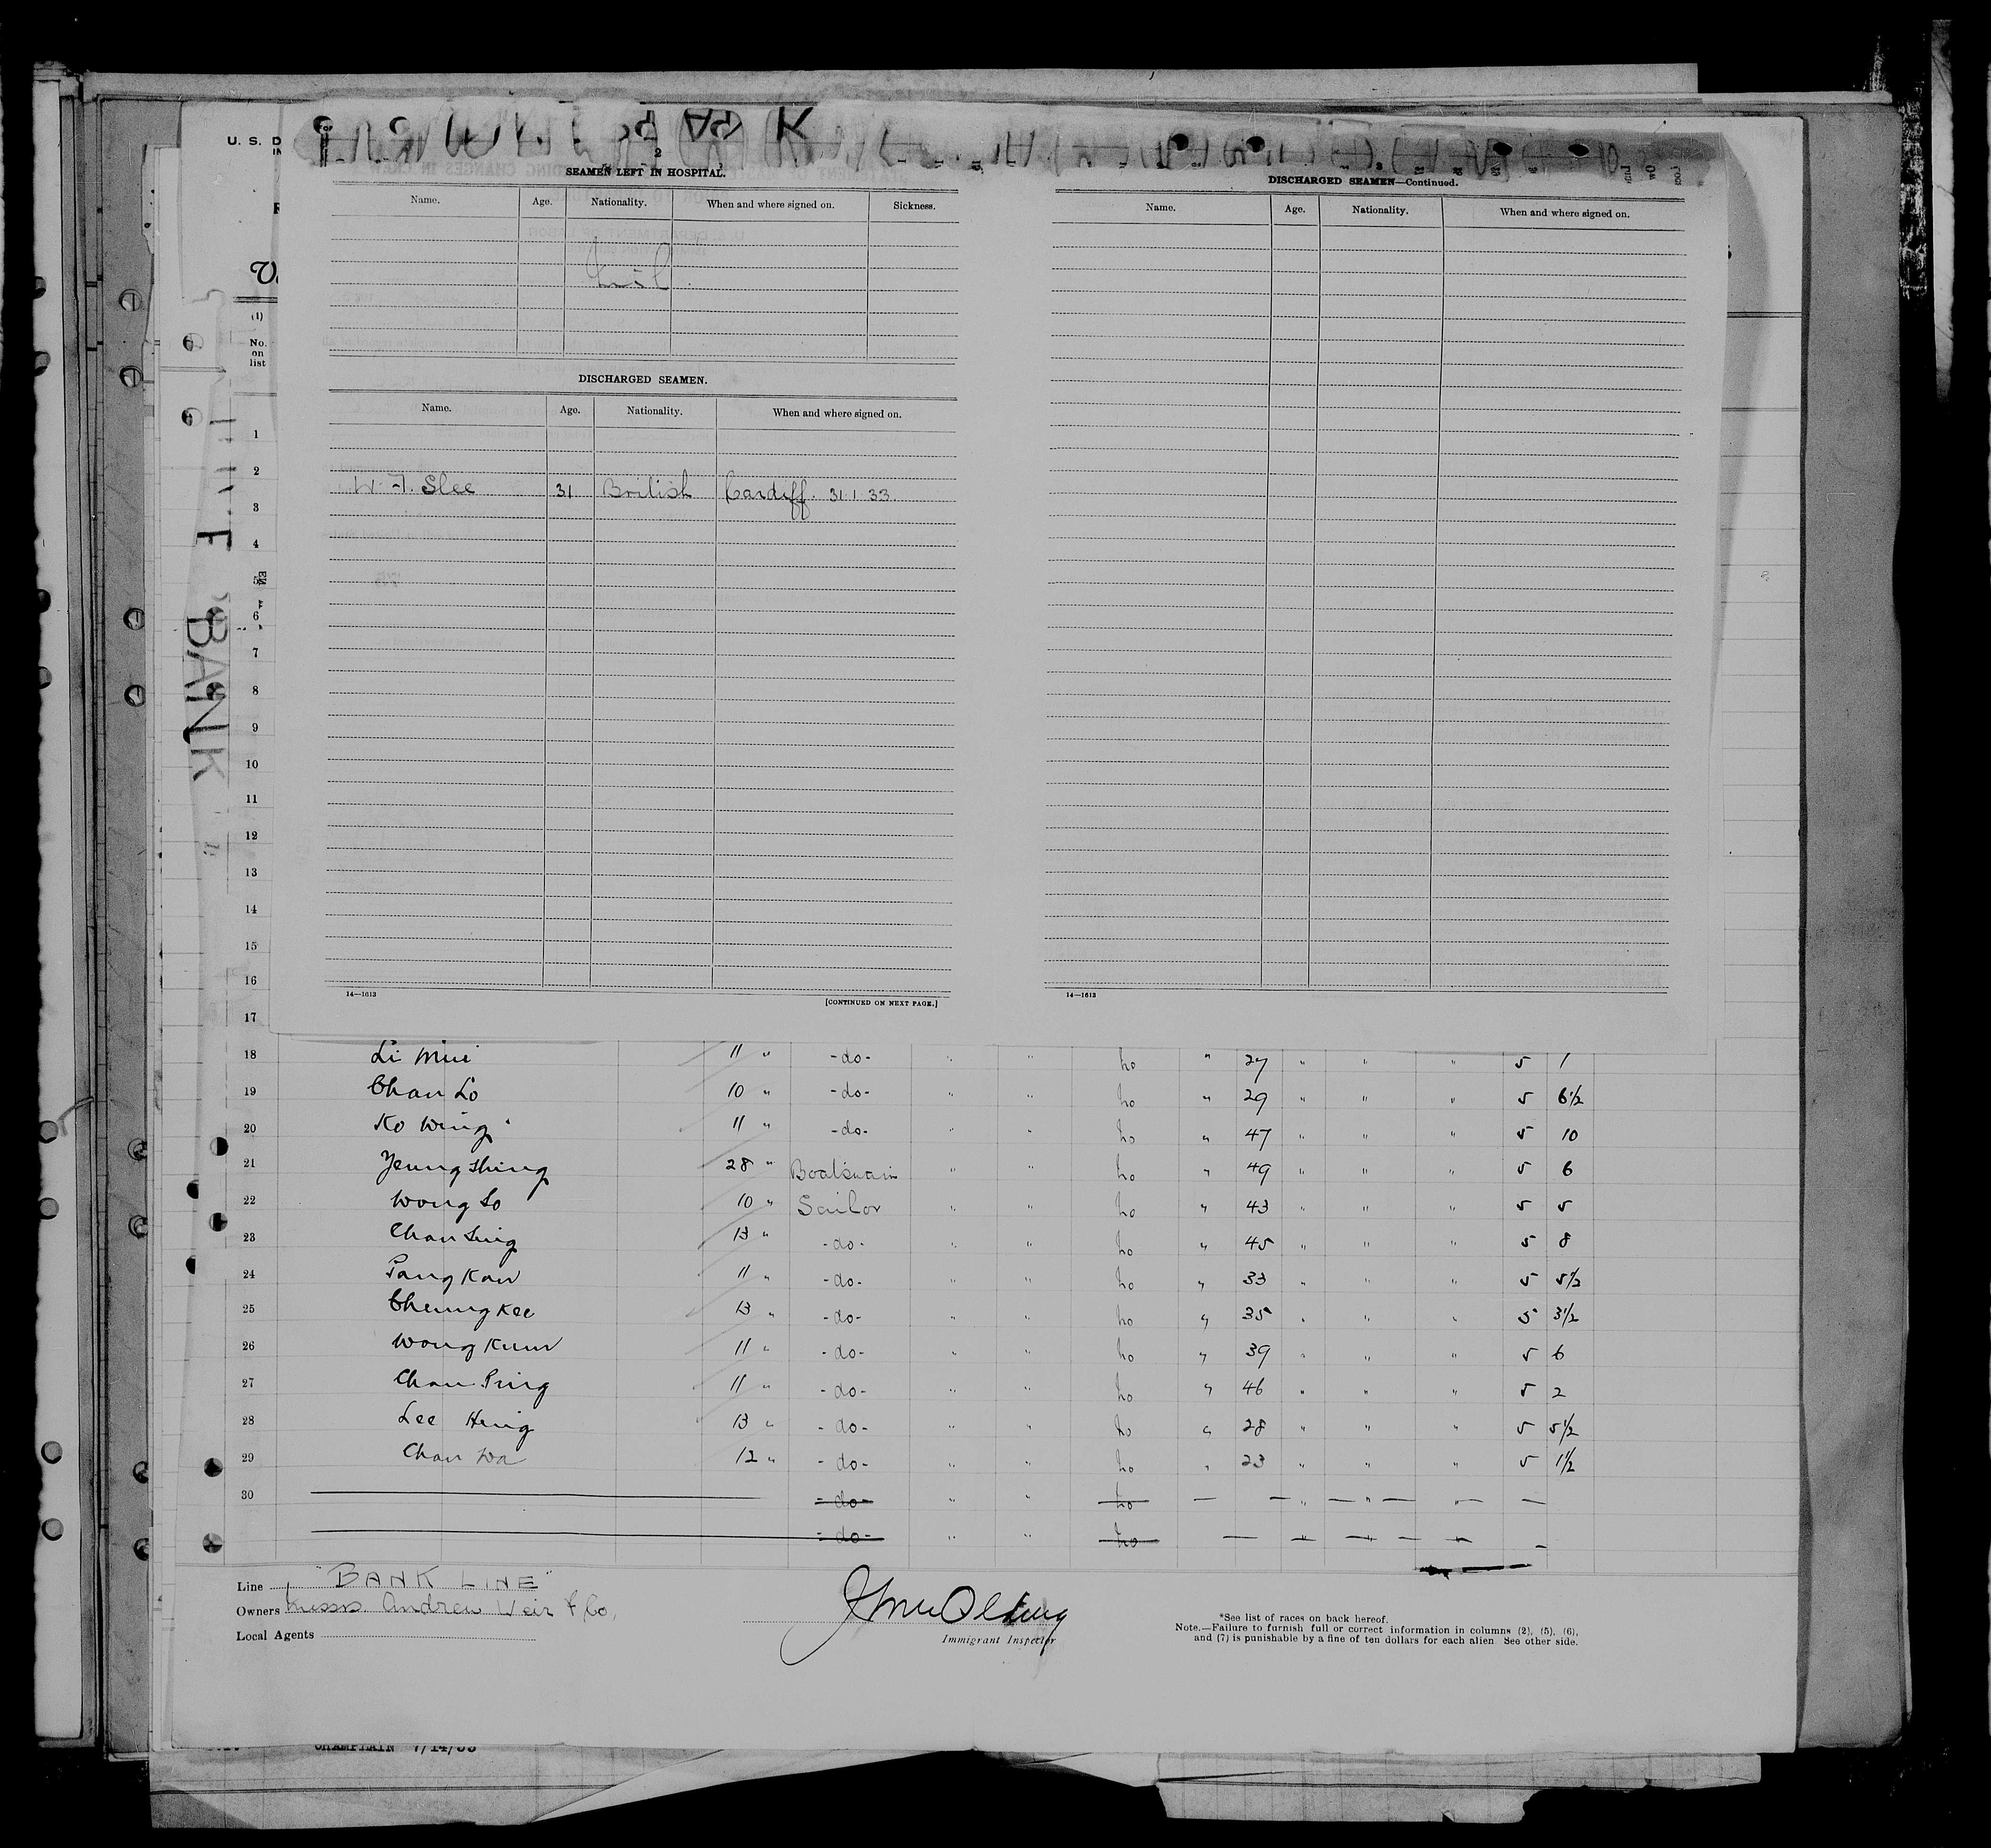 U. S. D
SEAMEN LEFT IN HOSPITAL.
Name. Age. Nationality. When and where signed on. Sickness.
Nil
DISCHARGED SEAMEN.
Name. Age. Nationality. When and where signed on.
W. F. Slee 31 British Cardiff. 31.1.33.
14—1613 [CONTINUED ON NEXT PAGE.]
DISCHARGED SEAMEN—Continued.
Name. Age. Nationality. When and where signed on.
14—1613
BANK
(1)
No.
on
list
1
2
3
4
5
6
7
8
9
10
11
12
13
14
15
16
17
18 Li Mui 11 " -do- " " no " 27 " " " 5 1
19 Chan Lo 10 " -do- " " no " 29 " " " 5 6½
20 Ko Wing 11 " -do- " " no " 47 " " " 5 10
21 Yeung Shing 28 " Boatswain " " no " 49 " " " 5 6
22 Wong So 10 " Sailor " " no " 43 " " " 5 5
23 Chan Sing 13 " -do- " " no " 45 " " " 5 8
24 Pang Kan 11 " -do- " " no " 33 " " " 5 5½
25 Cheung Kee 13 " -do- " " no " 35 " " " 5 3½
26 Wong Kum 11 " -do- " " no " 39 " " " 5 6
27 Chan Ping 11 " -do- " " no " 46 " " " 5 2
28 Lee Heng 13 " -do- " " no " 28 " " " 5 5½
29 Chan Wa 12 " -do- " " no " 23 " " " 5 1½
30 -do- " " no " " "
-do- " " no " " "
Line "BANK LINE"
Owners Messrs Andrew Weir & Co.
Local Agents
Immigrant Inspector
*See list of races on back hereof.
Note.—Failure to furnish full or correct information in columns (2), (5), (6),
and (7) is punishable by a fine of ten dollars for each alien. See other side.
CHAMPLAIN 7/14/33